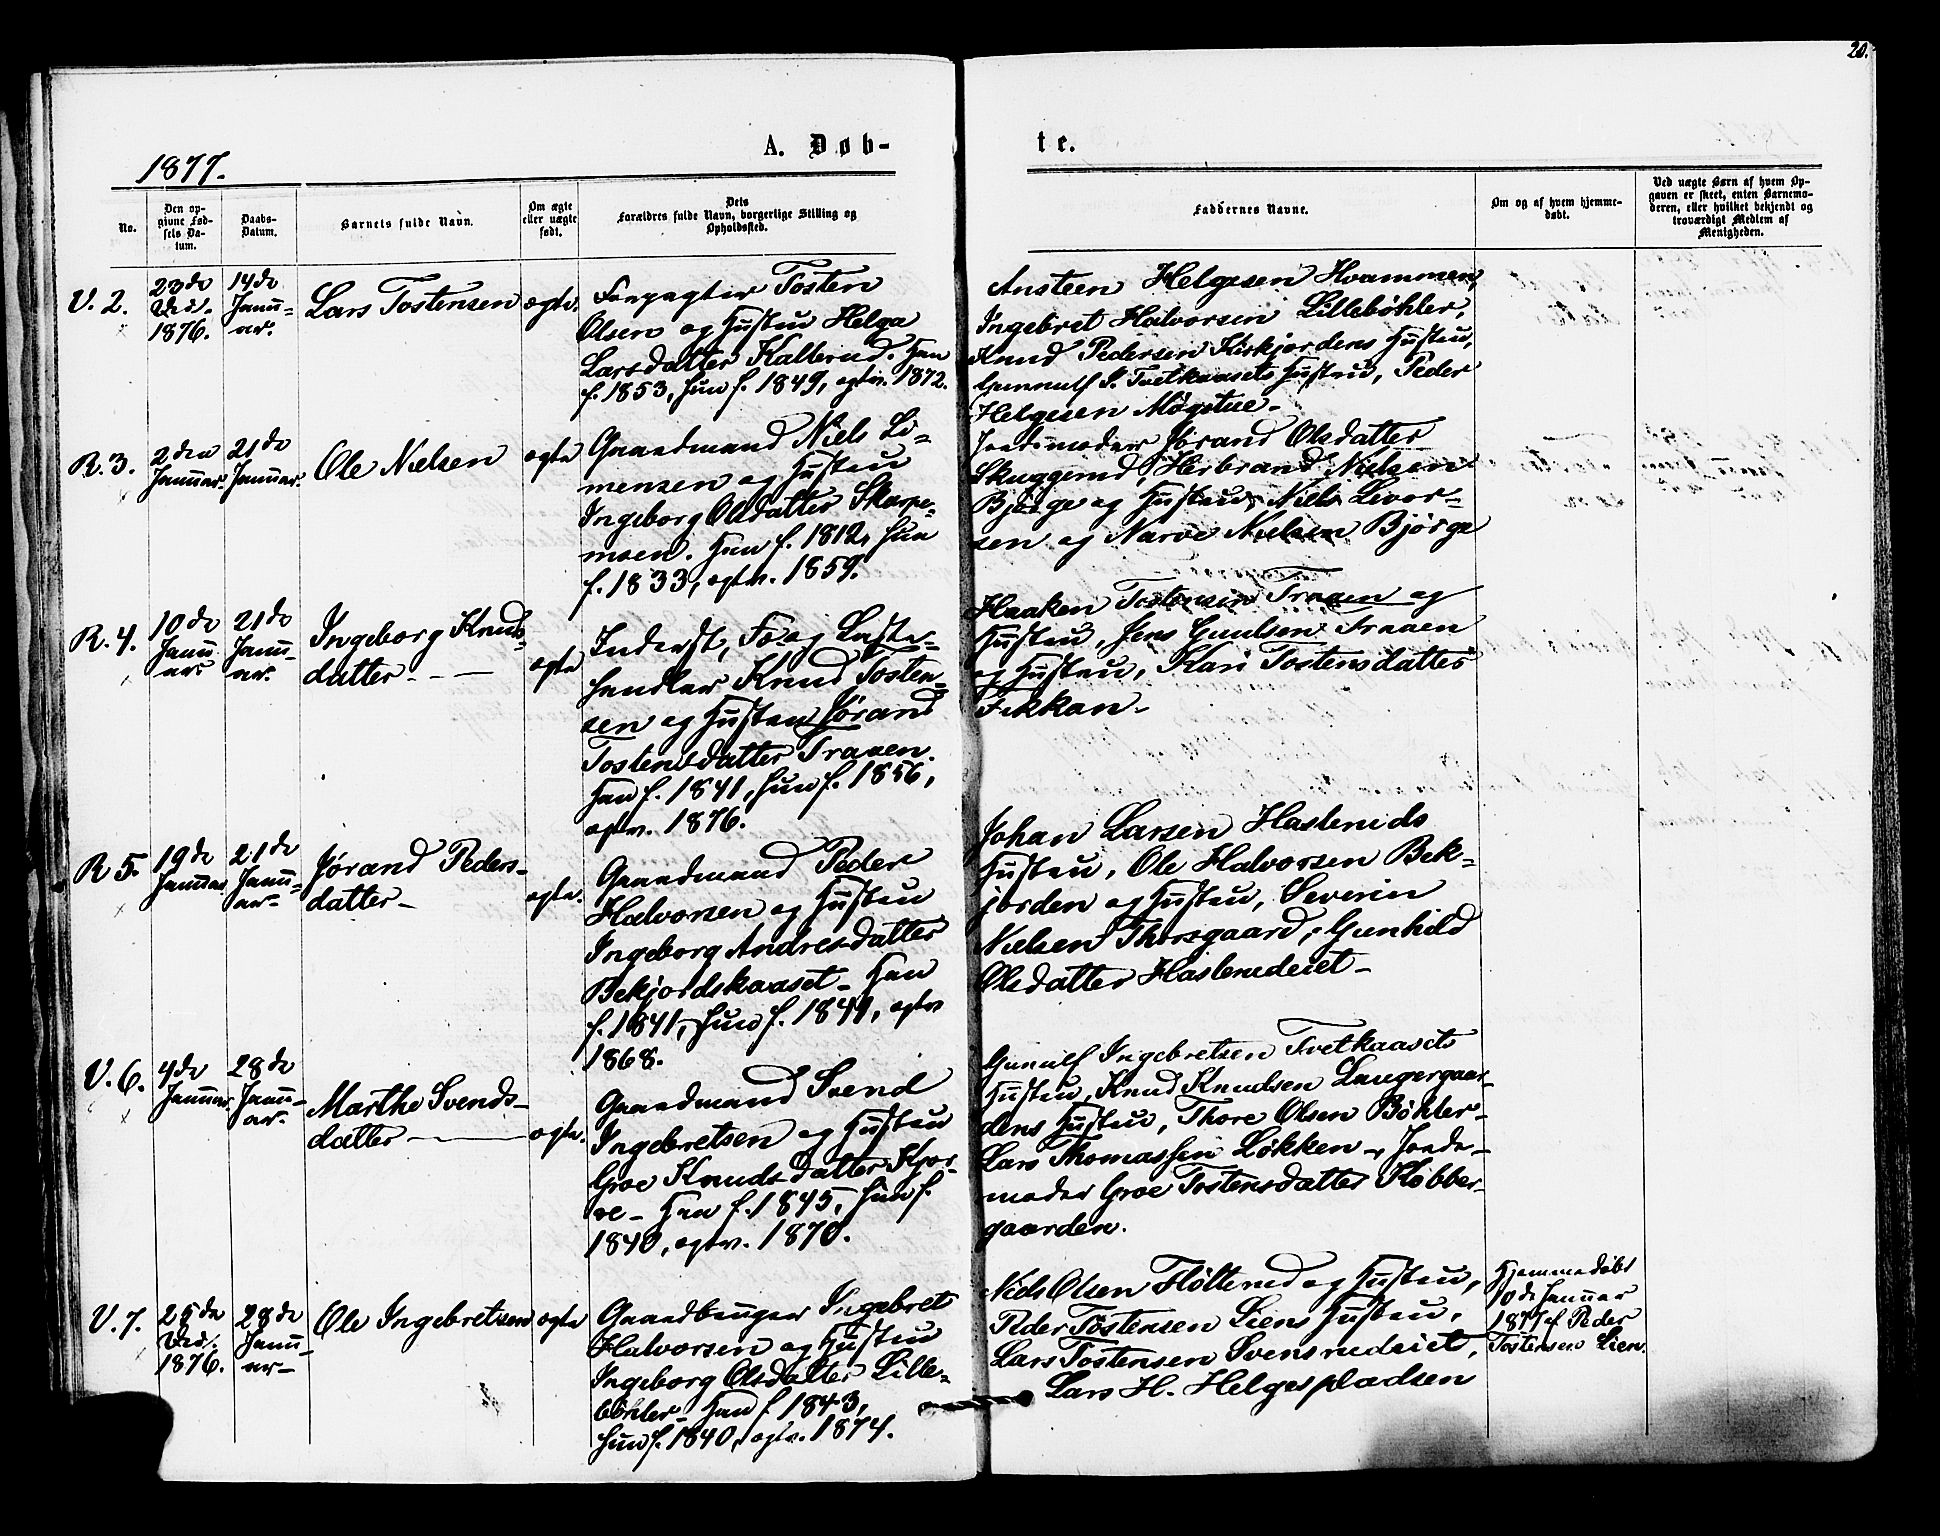 20.
1877.
A. Døb-
te.
No.
Den op-
givne Fød-
sels Da-
tum.
Daabs-
Datum.
Barnets fulde Navn.
Om ægte
eller uægte
født.
Dets
Forældres fulde Navn, borgerlige Stilling og
Opholdssted.
Faddernes Navne.
Om og af hvem hjemme-
døbt.
Ved uægte Børn af hvem Op-
gaven er skeet, enten Barnemo-
deren, eller hvilket bekjendt og
troværdigt Medlem af
Menigheden.
V. 2.
23de
Dec.
1876.
14de
Janu-
ar.
Lars Tostensen
ægte.
Forpagter Tosten
Olsen og Hustru Helga
Larsdatter Kallerud. Han
f. 1853, Hun f. 1849, egtv. 1872.
Ansteen Helgesen Hvammen,
Ingebret Halvorsen Lillebøhler,
Knud Pedersen Kirkjordens Hustru,
Gunnulf I. Tvetkaasets Hustru, Peder
Helgesen Møgstue-
R. 3.
2den
Januar.
21de
Januar.
Ole Nielsen
egte
Gaardmand Niels Li-
mensen og Hustru
Ingeborg Olsdatter Skarpe-
moen. Han f. 1812, Hun
f. 1833, egtv. 1859.
Jordemoder Jørand Olsdatter
Skuggerud, Herbrand Nielsen
Bjørge og Hustru, Niels Livor-
sen og Narve Nielsen Bjørge
R. 4.
10de
Janu-
ar.
21de
Janu-
ar.
Ingeborg Knuds-
datter-
egte
Inderst, Fo- og Laste-
handler Knud Tosten-
sen og Hustru Jørand
Tostensdatter Traaen.
Han f. 1841, Hun f. 1856,
egtv. 1876.
Haaken Tostensen Traaen og
Hustru, Jens Guulsen Traaen
og Hustru, Kari Tostensdatter
Fikkan-
R 5.
19de
Januar
21de
Janu-
ar-
Jørand Peders-
datter-
egte.
Gaardmand Peder
Halvorsen og Hustru
Ingeborg Andresdatter
Bekjordskaaset- Han
f. 1841, Hun f. 1841, egtv
1868.
Johan Larsen Hasleruds
Hustru, Ole Halvorsen Bek-
jorden og Hustru, Severin
Nielsen Thorsgaard, Gunhild
Olsdatter Haslerudeiet-
V. 6.
4de
Januar.
28de
Janu-
ar.
Marthe Svends-
datter-
egte.
Gaardmand Svend
Ingebretsen og Hustru
Groe Knudsdatter Kjør-
ve- Han f. 1845, Hun f.
1840, egtv. 1870.
Gunulf Ingebretsen Tvetkaasets
Hustru, Knud Knudsen Laugergaar-
dens Hustru, Thore Olsen Bøhler-
Lars Thomassen Løkken-, Jorde-
moder Groe Tostensdatter Klobber-
gaarden.
V. 7.
25de
Dec.
1876.
28de
Janu-
ar-
Ole Ingebretsen
egte
Gaardbruger Ingebret
Halvorsen og Hustru
Ingeborg Olsdatter Lille-
bøhler- Han f 1843,
Hun f. 1840, egtv. 1874.
Niels Olsen Fløtterud og Hustru,
Peder Tostensen Liens Hustru,
Lars Tostensen Svensrudeiet,
Lars H. Helgespladsen
Hjemmedøbt
10de Januar
1877 af Peder
Tostensen Lien.